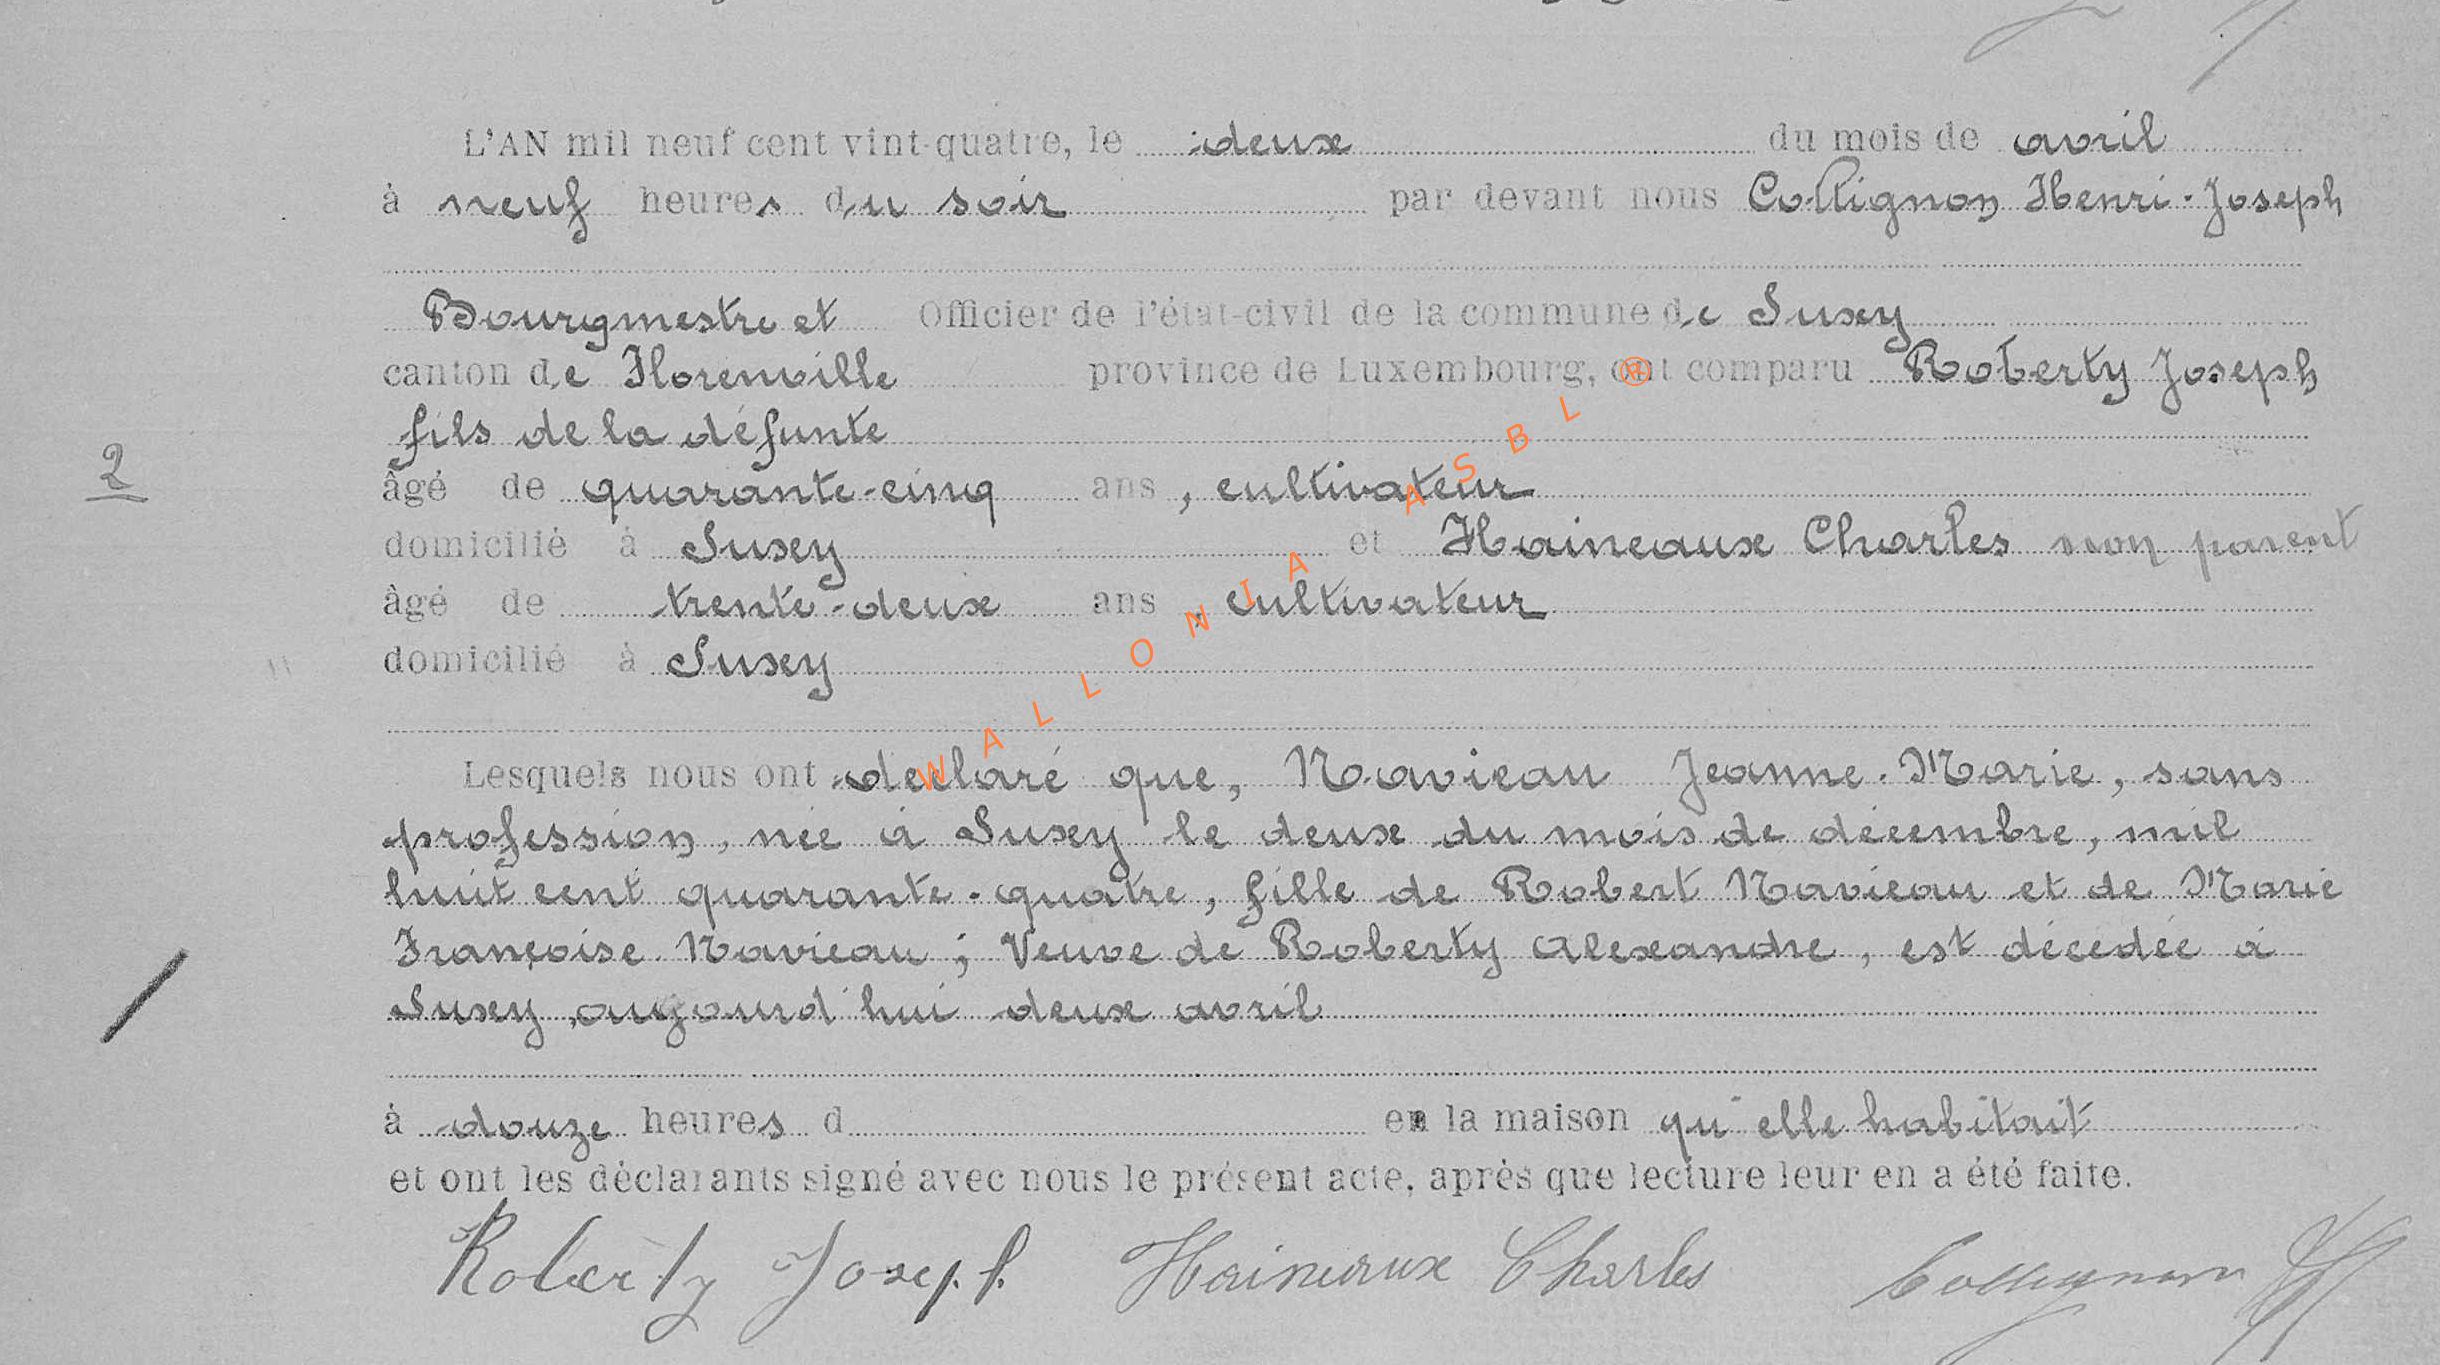 L'AN mil neuf cent vint-quatre, le deux du mois de avril
à neuf heures du soir par devant nous Collignon Henri-Joseph
Bourgmestre et Officier de l'état-civil de la commune de Suxey
canton de Florenville province de Luxembourg, ont comparu Roberty Joseph
fils de la défunte
2
âgé de quarante-cinq ans, cultivateur
domicilié à Suxey et Haineaux Charles non parent
âgé de trente-deux ans, cultivateur
domicilié à Suxey
WALLONIA ASBL ®
Lesquels nous ont déclaré que, Navieau Jeanne-Marie, sans
profession, née à Suxey le deux du mois de décembre, mil
huit cent quarante-quatre, fille de Robert Navieau et de Marie
Françoise Navieau; Veuve de Roberty Alexandre, est décédée à
Suxey, aujourd'hui deux avril
à douze heures d en la maison qu'elle habitait
et ont les déclarants signé avec nous le présent acte, après que lecture leur en a été faite.
Roberty Joseph Haineaux Charles Collignon